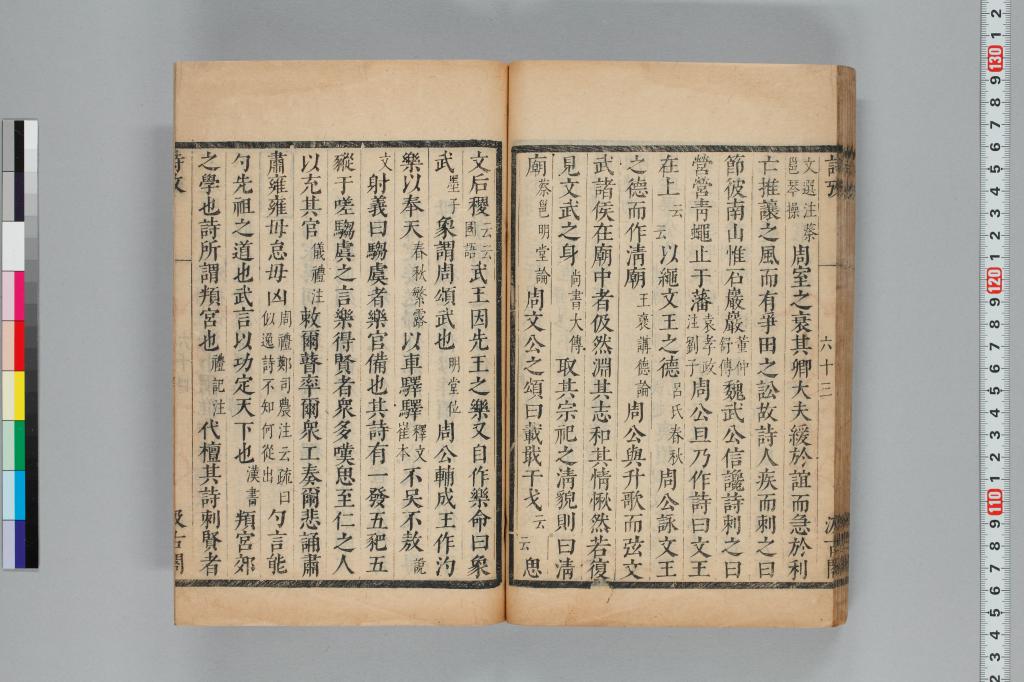 詩攷
六十三
汲古閣
文選注蔡
邕琴操
周室之衰其卿大夫緩於誼而急於利
亡推讓之風而有爭田之訟故詩人疾而刺之曰
節彼南山惟石巖巖董仲
舒傳
魏武公信讒詩刺之曰
營營靑蠅止于藩袁孝政
注劉子
周公旦乃作詩曰文王
在上云
云
以繩文王之德呂氏春秋
周公詠文王
之德而作淸廟王襃講德論
周公與升歌而弦文
武諸侯在廟中者伋然淵其志和其情愀然若復
見文武之身尙書大傳
取其宗祀之淸貌則曰淸
廟蔡邕明堂論
周文公之頌曰載戢干戈云
云
思
文后稷云云
國語
武王因先王之樂又自作樂命曰象
武墨子
象謂周頌武也明堂位
周公輔成王作汋
樂以奉天春秋繁露
以車驛驛釋文
崔本
不吳不敖說
文
射義曰騶虞者樂官備也其詩有一發五豝五
豵于嗟騶虞之言樂得賢者衆多嘆思至仁之人
以充其官儀禮注
敕爾瞽率爾衆工奏爾悲誦肅
肅雍雍毋怠毋凶周禮鄭司農注云疏曰
似逸詩不知何從出
勺言能
勺先祖之道也武言以功定天下也漢書
頖宮郊
之學也詩所謂頖宮也禮記注
代檀其詩刺賢者
詩攷
汲古閣